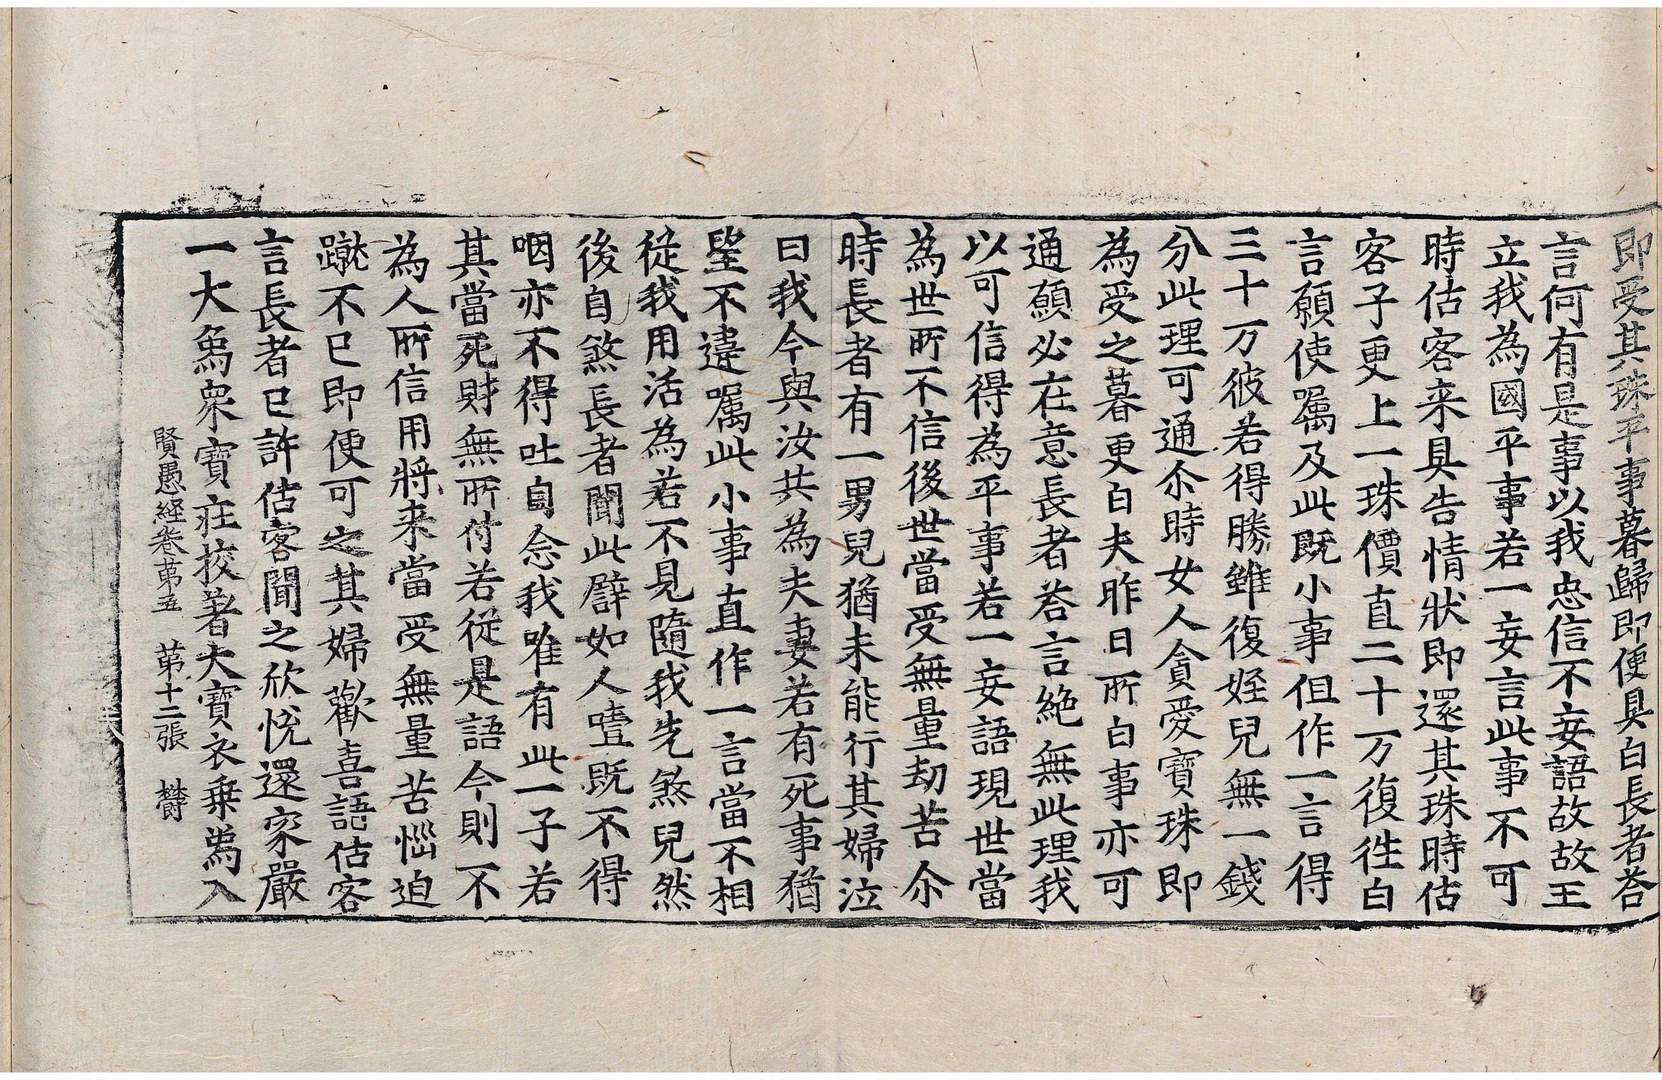 即受其珠平事暮歸即便具白長者荅
言何有是事以我忠信不妄語故故王
立我為國平事若一妄言此事不可
時估客来具告情狀即還其珠時估
客子更上一珠價直二十万復徃白
言願使囑及此既小事但作一言得
三十万彼若得勝雖復姪兒無一錢
分此理可通尒時女人貪愛寶珠即
為受之暮更白夫昨日所白事亦可
通願必在意長者荅言絶無此理我
以可信得為平事若一妄語現世當
為世所不信後世當受無量劫苦尒
時長者有一男兒猶未能行其婦泣
曰我今與汝共為夫妻若有死事猶
望不違囑此小事直作一言當不相
従我用活為若不見隨我先煞兒然
後自煞長者聞此譬如人噎既不得
咽亦不得吐自念我唯有此一子若
其當死財無所付若従是語今則不
為人所信用將来當受無量苦惱迫
蹴不已即便可之其婦歡喜語估客
言長者已許估客聞之欣悅還家嚴
一大象衆寶莊挍著大寶衣乗象入
賢愚経卷第五 第十二張 欝